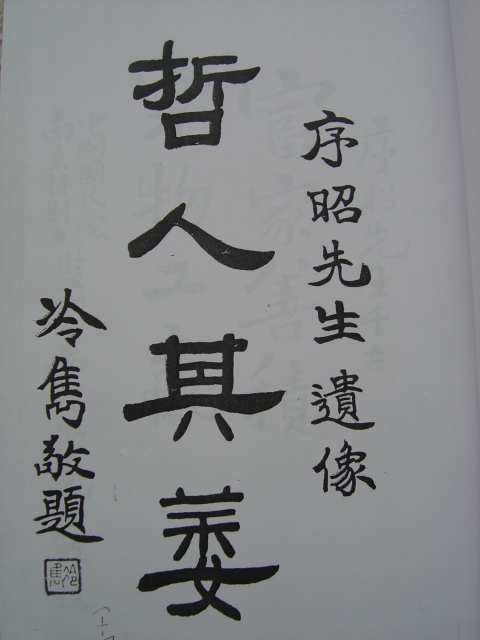 序昭先生遺像
哲人其萎
冷雋敬題